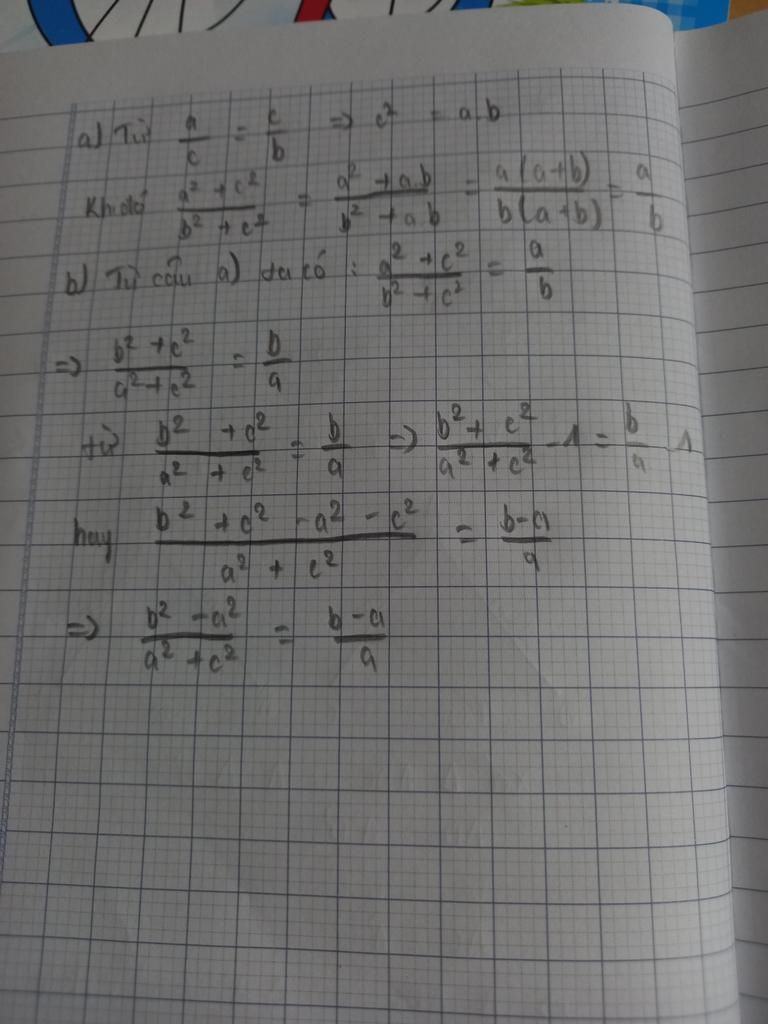 a) Từ a/c = c/b => c² = ab
Khi đó (a² + c²)/(b² + c²) = (a² + ab)/(b² + ab) = a(a+b)/b(a+b) = a/b
b) Từ câu a) ta có : (a² + c²)/(b² + c²) = a/b
=> (b² + c²)/(a² + c²) = b/a
từ (b² + c²)/(a² + c²) = b/a => (b² + c²)/(a² + c²) - 1 = b/a - 1
hay (b² + c² - a² - c²)/(a² + c²) = (b-a)/a
=> (b² - a²)/(a² + c²) = (b-a)/a